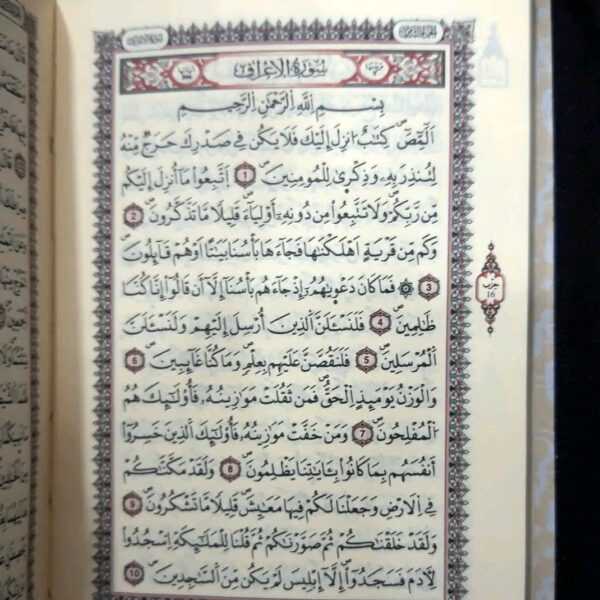 سورة الاعراف
بِسْمِ اللَّهِ الرَّحْمَٰنِ الرَّحِيمِ
أَلَٓمِّٓصَٓ كِتَٰبٌ انزِلَ إِلَيْكَ فَلَا يَكُن فِي صَدْرِكَ حَرَجٌ مِّنْهُ
لِتُنذِرَ بِهِۦ وَذِكْر۪يٰ لِلْمُومِنِينَۖ 1 اَ۪تَّبِعُواْ مَآ أُنزِلَ إِلَيْكُم
مِّن رَّبِّكُمْۖ وَلَا تَتَّبِعُواْ مِن دُونِهِۦٓ أَوْلِيَآءَۖ قَلِيلاٗ مَّا تَذَّكَّرُونَۖ 2
وَكَم مِّن قَرْيَةٍ اَهْلَكْنَٰهَا فَجَآءَهَا بَأْسُنَا بَيَٰتاً اَوْ هُمْ قَآئِلُونَۖ
3 ۞ فَمَا كَانَ دَعْو۪يٰهُمُۥٓ إِذْ جَآءَهُم بَأْسُنَآ إِلَّآ أَن قَالُوٓاْ إِنَّا كُنَّا
ظَٰلِمِينَۖ 4 فَلَنَسْـَٔلَنَّ اَ۬لذِينَ أُرْسِلَ إِلَيْهِمْ وَلَنَسْـَٔلَنَّ
اَ۬لْمُرْسَلِينَۖ 5 فَلَنَقُصَّنَّ عَلَيْهِم بِعِلْمٖۖ وَمَا كُنَّا غَآئِبِينَۖ 6
وَالْوَزْنُ يَوْمَئِذٍ اِ۬لْحَقُّۖ فَمَن ثَقُلَتْ مَوَٰزِينُهُۥ فَأُوْلَٰٓئِكَ هُمُ
اُ۬لْمُفْلِحُونَۖ 7 وَمَنْ خَفَّتْ مَوَٰزِينُهُۥ فَأُوْلَٰٓئِكَ اَ۬لذِينَ خَسِرُوٓاْ
أَنفُسَهُم بِمَا كَانُواْ بِـَٔايَٰتِنَا يَظْلِمُونَۖ 8 وَلَقَدْ مَكَّنَّٰكُمْ
فِي اِ۬لَارْضِ وَجَعَلْنَا لَكُمْ فِيهَا مَعَٰيِشَۖ قَلِيلاٗ مَّا تَشْكُرُونَۖ 9
وَلَقَدْ خَلَقْنَٰكُمْ ثُمَّ صَوَّرْنَٰكُمْ ثُمَّ قُلْنَا لِلْمَلَٰٓئِكَةِ اِ۟سْجُدُواْ
لِأٓدَمَ فَسَجَدُوٓاْ إِلَّآ إِبْلِيسَ لَمْ يَكُن مِّنَ اَ۬لسَّٰجِدِينَۖ 10
حزب
16